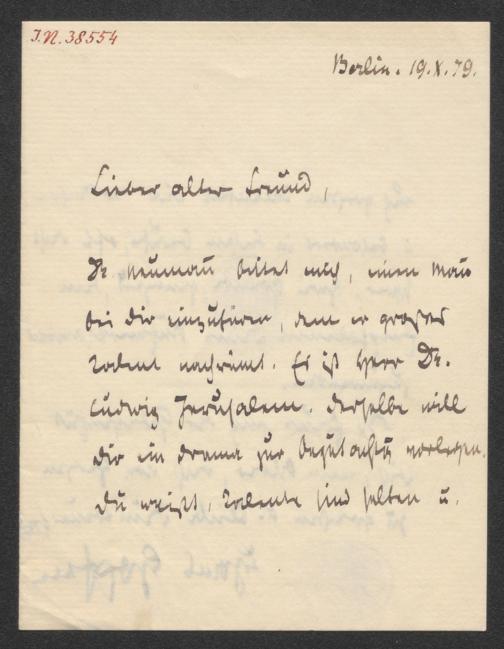 J.N. 38554
Berlin. 19.X.79.
Lieber alter Freund,
Dr. Neumann bittet mich, einen Mann
bei dir einzufüren, dem er großes
Talent nachrümt. Es ist Herr Dr.
Ludwig Jerusalem. Derselbe will
dir ein Drama zur Begutachtg vorlegen.
Du weißt, Talente sind selten u.